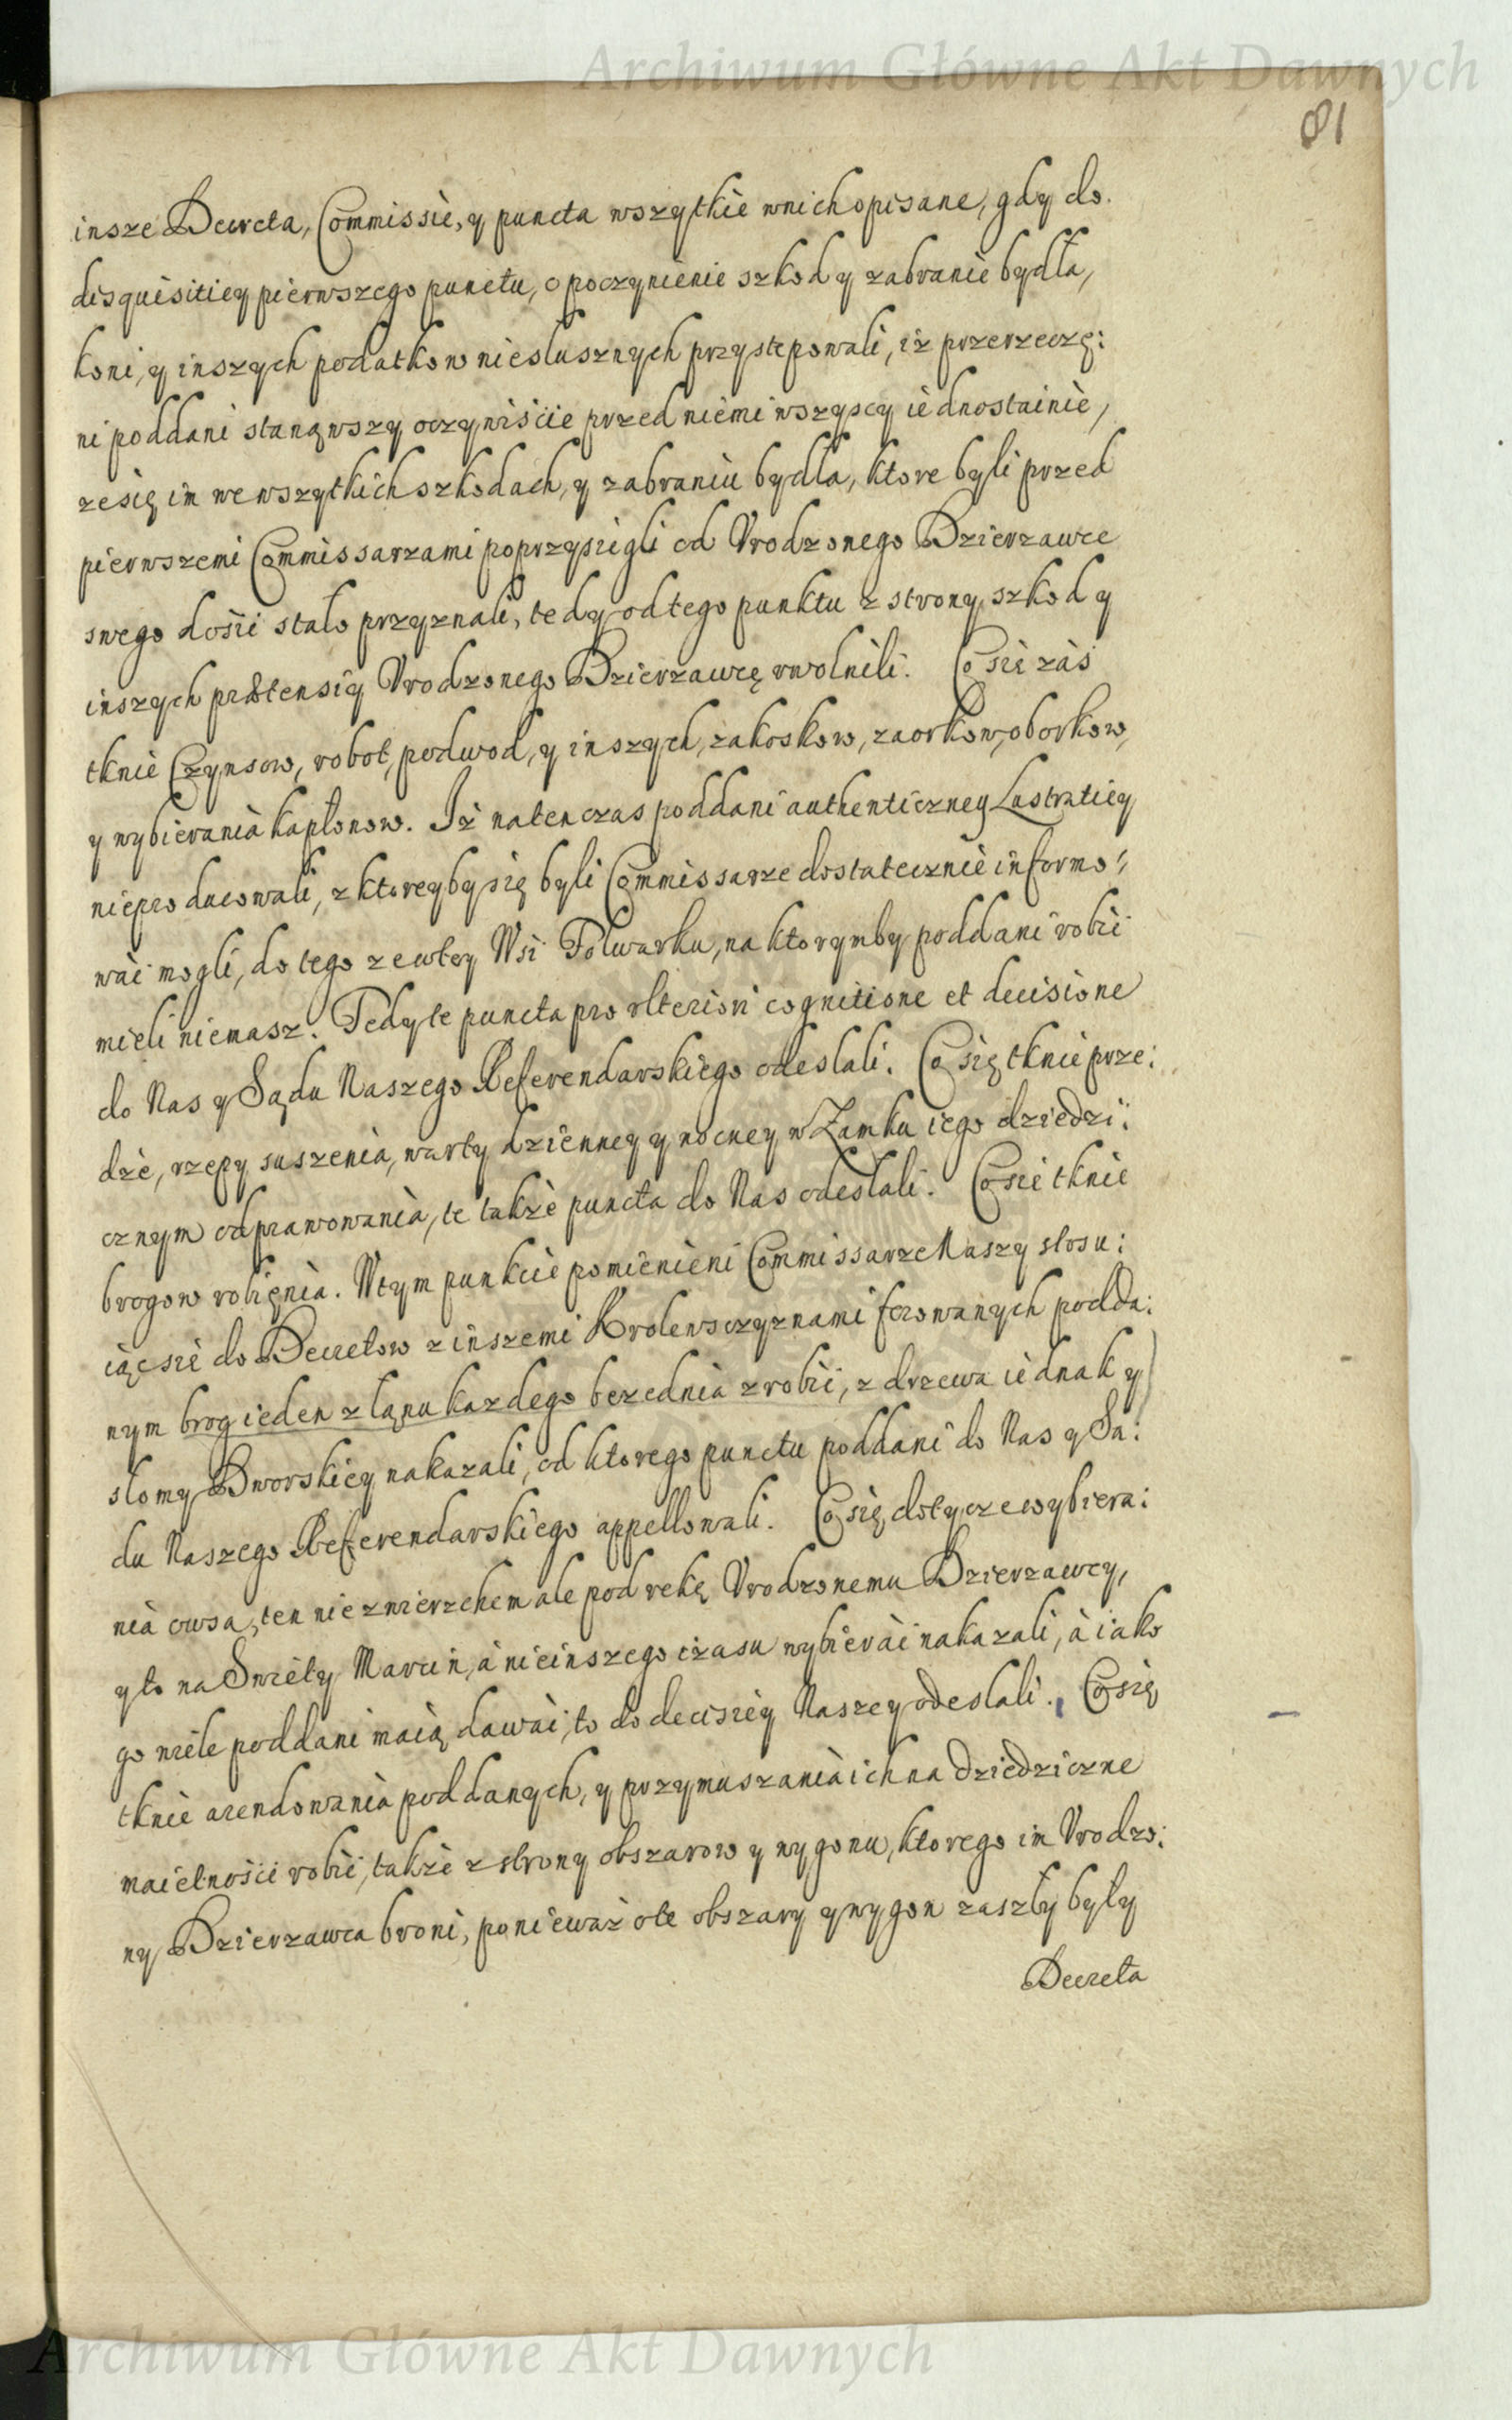 Archiwum Główne Akt Dawnych
81
insze Decreta, Commissie, y puncta wszytkie wnich opisane, gdy do
disquisitiey pierwszego punctu, o poczynienie szkod y zabranie bydła,
koni, y inszych podatkow niesłusznych przystepowali, iż przerzecze:
ni poddani stanąwszy oczywiście przed niemi wszyscy iednostainie,
ze się im we wszytkich szkodach, y zabraniu bydła, ktore byli przed
pierwszemi Commissarzami poprzysięgli od Vrodzonego Dzierzawce
swego dosic stało przyznali, tedy od tego punktu z strony szkod y
inszych prætensiy Vrodzonego Dzierzawcę vwolnili. Co sie zaś
tknie Czynsow, robot, podwod, y inszych, zakoskow, zaorkow, oborkow,
y wybierania kapłonow. Iż na ten czas poddani authenticzney Lustratiey
nieproducowali, z ktorey by się byli Commissarze dostatecznie informo:
wać mogli, do tego ze w tey Wsi Folwarku, na ktorymby poddani robić
mieli niemasz. Tedy te puncta pro vlteriori cognitione et decisione
do Nas y Sądu Naszego Referendarskiego odesłali. Co się tknie prze:
dże, rzepy suszenia, warty dzienney y nocney w Zamku iego dziedzi:
cznym odprawowania, te także puncta do Nas odesłali. Co sie tknie
brogow robienia. Wtym punkcie pomienieni Commissarze Naszy stosu:
iąc sie do Decretow z inszemi Krolewsczyznami ferowanych podda:
nym brog ieden z łanu kazdego bezednia zrobić, z drzewa iednak y
słomy Dworskiey nakazali, od ktorego punctu poddani do Nas y Są:
du Naszego Referendarskiego appellowali. Co się dotycze wybiera:
nia owsa, ten nie z wierzchem ale pod rekę Vrodzonemu Dzierzawcy,
y to na Swiety Marcin, a nie inszego czasu wybierać nakazali, à iako
go wiele poddani maią dawać, to do decisiey Naszey odesłali. Co się
tknie arendowania poddanych, y przymuszania ich na dziedziczne
maietności robić, także z strony obszarow y wygonu, ktorego im Vrodzo:
ny Dzierzawca broni, ponieważ o te obszary y wygon zaszły były
Decreta
Archiwum Główne Akt Dawnych